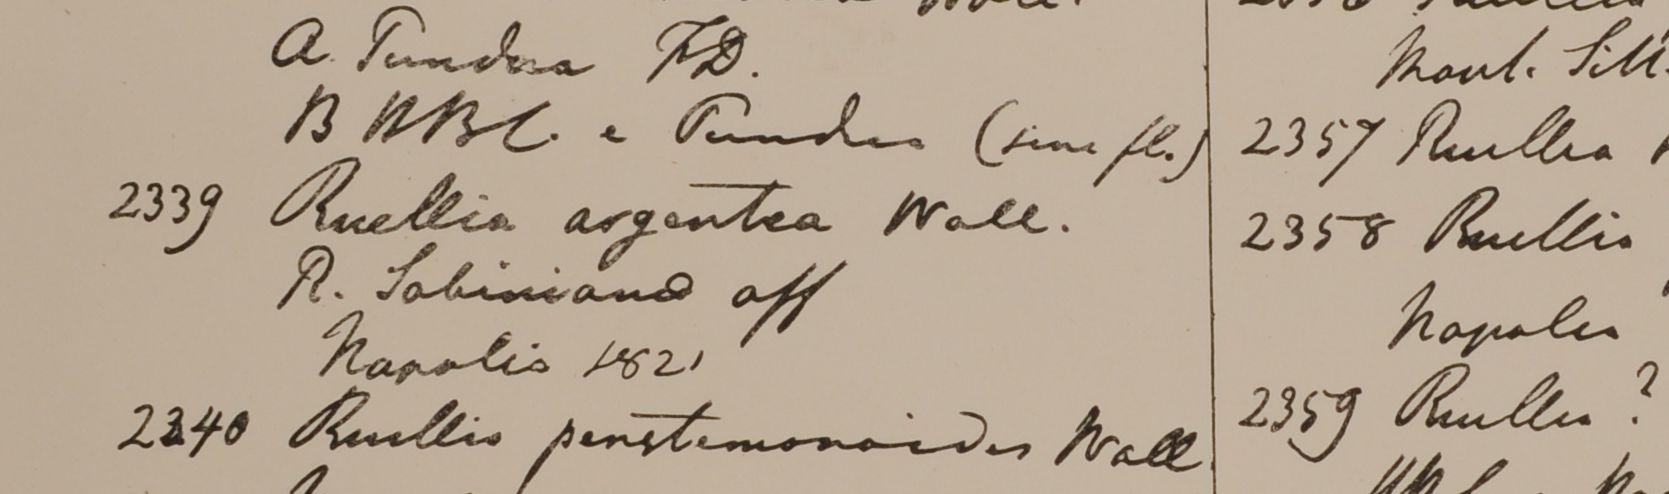 Wall.
A. Pundua F.D.
B HBC. e Pundua (sine fl.)
2339 Ruellia argentea Wall.
R. Sabiniana aff
Napalia 1821
2340 Ruellia penstemonoides Wall
2356 Ruellia
Mont. Sill.
2357 Ruellia
2358 Ruellia
Napalia
2359 Ruellia ?